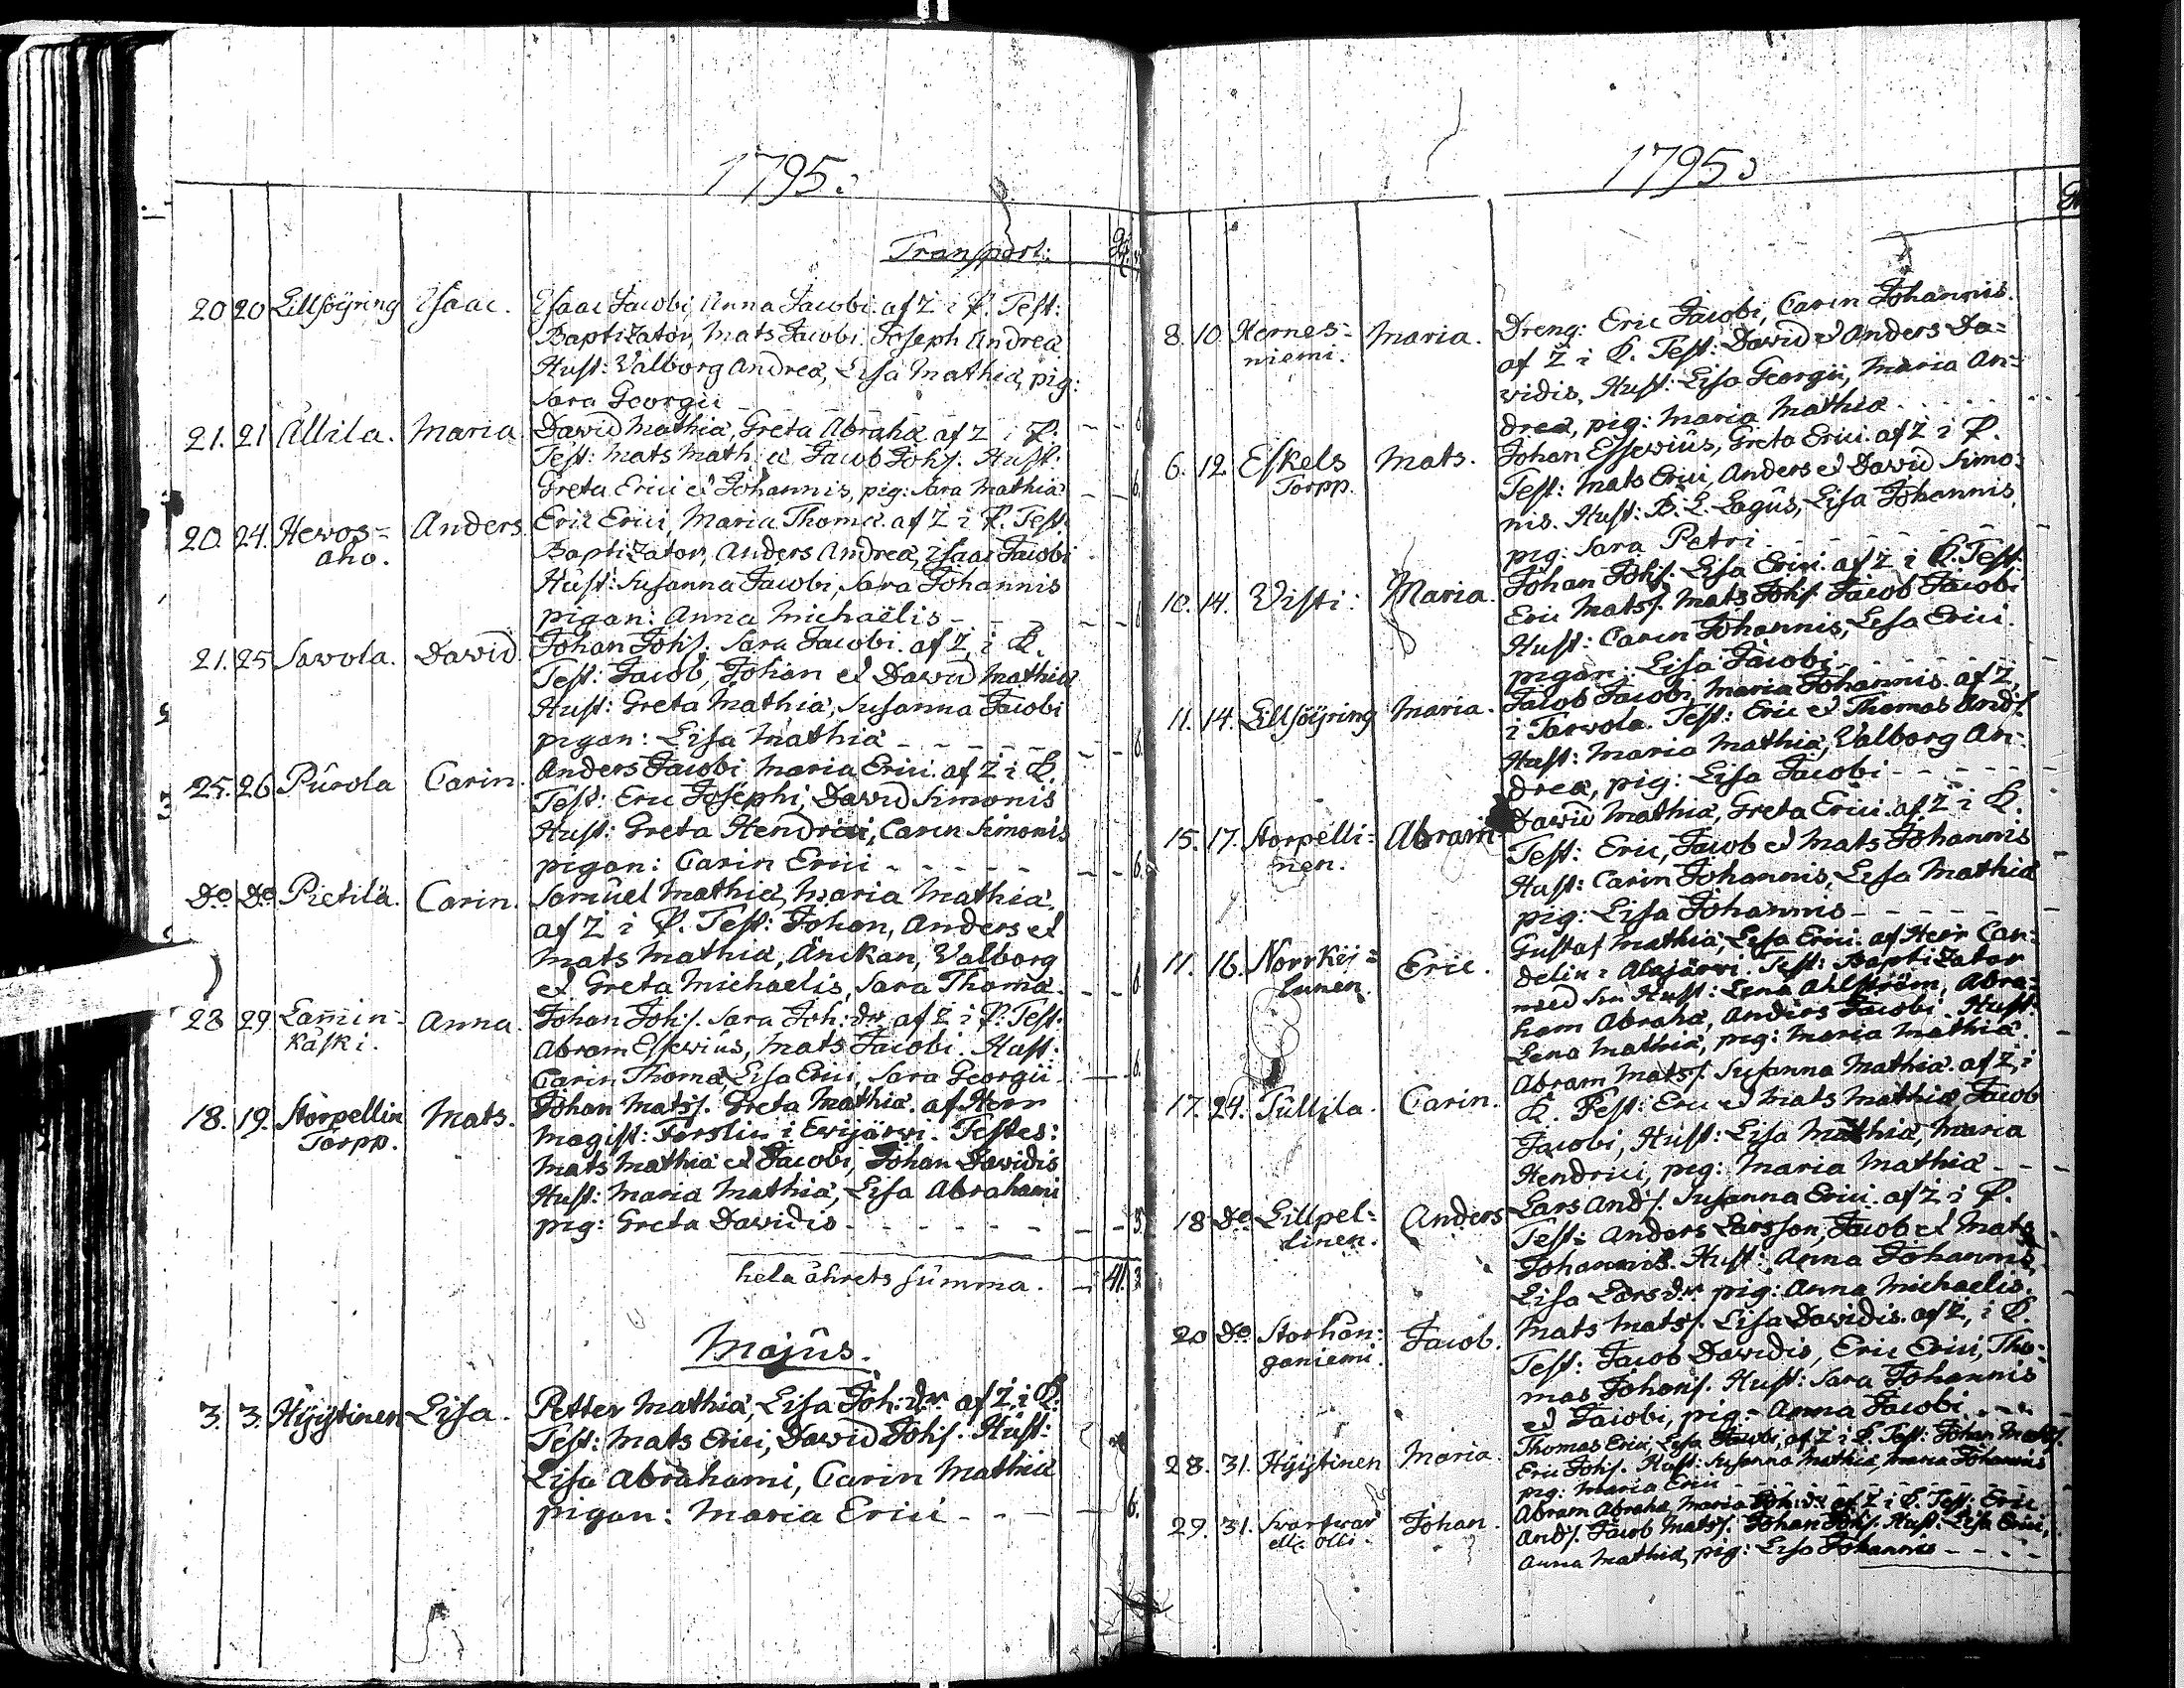 1795.
Transport:
20 20 Lillsöÿring Isaac. Isaac Jacobi, Anna Jacobi. af Z i P. Test:
Baptizator, Mats Jacobi. Joseph Andreæ
Hust: Valborg Andreæ, Lisa Mathiæ, pig:
Sara Georgii
21. 21 Allila. Maria. David Mathiæ, Greta Abrahæ af Z i P.
Test: Mats Mathiæ Jacob Johs. Hust:
Greta Erici et Johannis, pig: Sara Mathiæ 6.
20. 24. Hewos= Anders. Eric Erici, Maria Thomæ. af Z i P. Test:
aho. Baptizator, Anders Andreæ, Isaac Jacobi
Hust: Susanna Jacobi, Sara Johannis
pigan: Anna Michaëlis
21. 25 Savola. David. Johan Johs. Sara Jacobi. af Z i P.
Test: Jacob, Johan et David Mathiæ
Hust: Greta Mathiæ, Susanna Jacobi
pigan: Lisa Mathiæ 6.
25. 26 Purola Carin. Anders Jacobi Maria Erici. af Z i P.
Test: Eric Josephi, David Simonis
Hust: Greta Hendrici, Carin Simonis
pigan: Carin Erici 6.
Do. Do Pietilä. Carin. Samuel Mathiæ, Maria Mathiæ.
af Z i P. Test: Johan, Anders et
Mats Mathiæ, Änckan, Valborg
et Greta Michaelis, Sara Thomæ 6
28 29. Lamin= Anna. Johan Johs. Sara Joh:dr. af Z i P. Test:
käski. Abram Essevius, Mats Jacobi. Hust:
Carin Thomæ, Lisa Erici, Sara Georgii 6.
18. 19. Storpellin Mats. Johan Matss. Greta Mathiæ. af Herr
Torpp. Magist: Forslin i Ewijärwi. Testes:
Mats Mathiæ et Jacobi, Johan Davidis
Hust: Maria Mathiæ, Lisa Abrahami
pig: Greta Davidis 3.
hela åhrets summa. 41.
Majus.
3. 3. Hÿÿtinen Lisa. Petter Mathiæ, Lisa Joh:dr. af Z i P.
Test: Mats Erici, David Johs. Hust:
Lisa Abrahami, Carin Mathiæ
pigan: Maria Erici 6.
1795.
8. 10. Hernes= Maria. Dreng: Eric Jacobi, Carin Johannis.
niemi. af Z i P. Test: David et Anders Da=
vidis, Hust: Lisa Georgii, Maria An=
dreæ, pig: Maria Mathiæ
6. 12. Eskels Mats. Johan Essevius, Greta Erici. af Z i P.
Torpp. Test: Mats Erici, Anders et David Simo=
nis. Hust: B. L. Lagus, Lisa Johannis
pig: Sara Petri
10. 14. Visti: Maria. Johan Johs. Lisa Erici. af Z i P. Test:
Eric Matss. Mats Johs. Jacob Jacobi
Hust: Carin Johannis, Lisa Erici.
pigan: Lisa Jacobi
11. 14. Lillsöÿring Maria. Jacob Jacobi, Maria Johannis. af Z,
i Tarvola. Test: Eric et Thomas Ands.
Hust: Maria Mathiæ, Valborg An=
dreæ, pig: Lisa Jacobi
15. 17. Storpelli= Abram David Mathiæ, Greta Erici. af Z i P.
nen. Test: Eric, Jacob et Mats Johannis
Hust: Carin Johannis, Lisa Mathiæ
pig: Lisa Johannis
11. 16. Norrkÿ= Eric. Gustaf Mathiæ, Lisa Erici. af Herr Can=
lanen delin i Alajärwi. Test: Baptizator
med sin Hust: Lena Ahlström, Abra=
ham Abrahæ, Anders Jacobi. Hust:
Lena Mathiæ, pig: Maria Mathiæ
17. 24. Tullila. Carin. Abram Matss. Susanna Mathiæ. af Z, i
P. Test: Eric et Mats Mathiæ Jacob
Jacobi, Hust: Lisa Mathiæ, Maria
Hendrici, pig: Maria Mathiæ
18 Do. Lillpel= Anders Lars Ands. Susanna Erici. af Z i P.
linen. Test: Anders Larsson, Jacob et Mats
Johannis. Hust: Anna Johannis,
Lisa Larsdr. pig: Anna Michaelis.
20 Do Storhon= Jacob. Mats Matss. Lisa Davidis. af Z, i P.
ganiemi. Test: Jacob Davidis, Eric Erici, Tho=
mas Johans. Hust: Sara Johannis
et Jacobi, pig: Anna Jacobi
28. 31. Hÿÿtinen Maria. Thomas Erici, Lisa Jacobi, af Z i P. Test: Johan Matss.
Eric Johs. Hust: Susanna Mathiæ, Maria Johannis
pig: Maria Erici
29. 31. Svartvar Johan. Abram Abrahæ, Maria Joh:dr. af Z i P. Test: Eric
ell: Olli. Ands. Jacob Matss. Johan Johs. Hust: Lisa Erici,
Anna Mathiæ, pig: Lisa Johannis